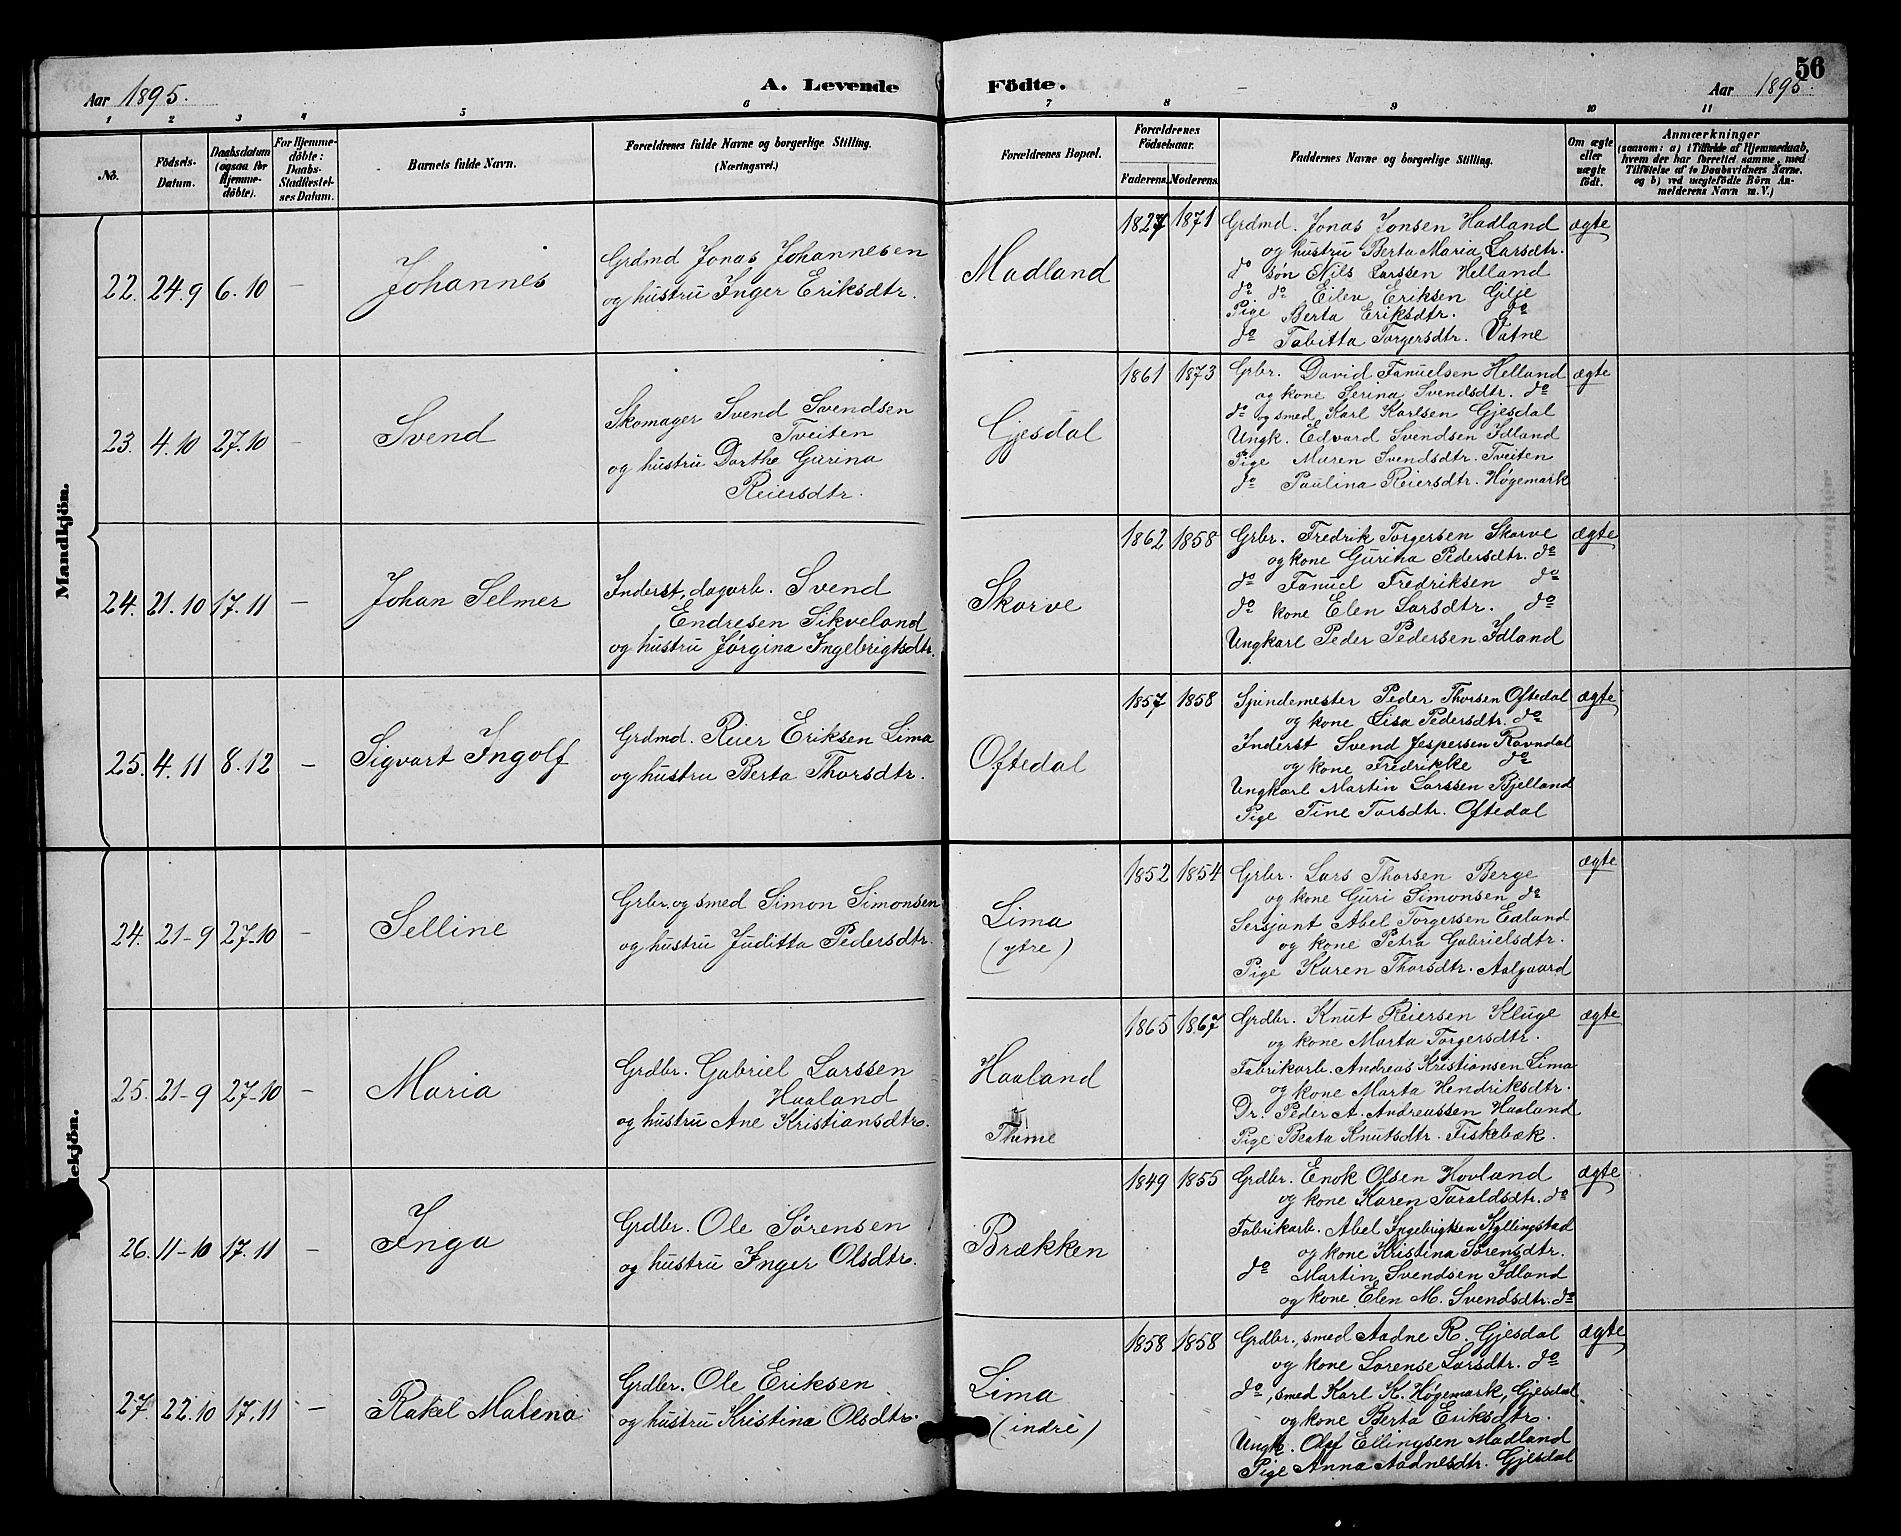 56
Aar 1895.
A. Levende
Födte.
Aar 1895.
1 2 3 4 5 6 7 8 9 10 11
No.
Födsels-Datum.
Daabsdatum (ogsaa for Hjemme-döbte).
For Hjemme-döbte: Daabs-Stadfæstel-ses Datum.
Barnets fulde Navn.
Forældrenes fulde Navne og borgerlige Stilling.
(Næringsvei.)
Forældrenes Bopæl.
Forældrenes Födselsaar.
Faderens. Moderens.
Faddernes Navne og borgerlige Stilling.
Om ægte eller uægte födt.
Anmærkninger
(saasom: a) i Tilfælde af Hjemmedaab, hvem der har forrettet samme, med Tilföielse af to Daabsvidners Navne. og b) ved uægtefödte Börn An-melderens Navn m. V.)
Mandkjön.
22. 24.9 6.10 –
Johannes
Grdmd Jonas Johannesen
og hustru Inger Eriksdtr.
Madland
1827 1871
Grdmd. Jonas Jonsen Hadland
og hustru Berta Maria Larsdtr.
do søn Nils Larssen Helland
do do Eilev Eriksen Gilje
Pige Berta Eriksdtr. do
do Tabitta Torgersdtr. Vatne
ægte
23. 4.10 27.10 –
Svend
Skomager Svend Svendsen
Tveiten
og hustru Dorthe Gurina
Reiersdtr.
Gjesdal
1861 1873
Grbr. David Fanuelsen Helland
og kone Serina Svendsdtr. do
do og smed Karl Karlsen Gjesdal
Ungk. Edvard Svendsen Idland
Pige Maren Svendsdtr. Tveiten
do Paulina Reiersdtr. Høgemark
ægte
24. 21.10 17.11 –
Johan Selmer
Inderst, dagarb. Svend
Endresen Sikveland
og hustru Jørgina Ingebrigtsdtr.
Skorve
1862 1858
Grbr. Fredrik Torgersen Skorve
og kone Gurina Pedersdtr. do
do Fanuel Fredriksen do
do kone Elen Larsdtr. do
Ungkarl Peder Pedersen Idland
ægte
25. 4.11 8.12 –
Sigvart Ingolf
Grdmd. Reier Eriksen Lima
og hustru Berta Thorsdtr.
Oftedal
1857 1858
Spindemester Peder Thorsen Oftedal
og kone Lisa Pedersdtr. do
Inderst Svend Jespersen Ravndal
og kone Fredrikke do
Ungkarl Martin Larssen Bjelland
Pige Tine Torsdtr. Oftedal
ægte
24. 21-9 27-10 –
Selline
Grbr. og smed Simon Simonsen
og hustru Juditta Pedersdtr.
Lima
(ytre)
1852 1854
Grbr. Lars Thorsen Berge
og kone Guri Simonsen do
Sersjant Abel Torgersen Edland
og kone Petra Gabrielsdtr.
Pige Karen Thorsdtr. Aalgaard
ægte
25. 21-9 27-10 –
Maria
Grdbr. Gabriel Larssen
Haaland
og hustru Ane Kristiansdtr.
Haaland
i
Thime
1865 1867
Grdbr. Knut Reiersen Kluge
og kone Marta Torgersdtr.
Fabrikarb. Andreas Kristiansen Lima
og kone Marta Hendriksdtr.
Dr. Peder A. Andreassen Haaland
Pige Berta Knutsdtr. Fiskebæk.
ægte
26. 11-10 17.11 –
Inga
Grdbr. Ole Sørensen
og hustru Inger Olsdtr.
Brækken
1849 1855
Grdbr. Enok Olsen Hovland
og kone Karen Taraldsdtr. do
Fabrikarb. Abel Ingebrigtsen Kyllingstad
og kone Kristina Sørensdtr.
do Martin Svendsen Idland
og kone Elen M. Svendsdtr. do
ægte
27. 22.10 17.11 –
Rakel Malena
Grdbr. Ole Eriksen
og hustru Kristina Olsdtr.
Lima
(indre)
1858 1858
Grdbr., smed Aadne R. Gjesdal
og kone Sørense Larsdtr. do
do, smed Karl K. Høgemark, Gjesdal
og kone Berta Eriksdtr.
Ungk. Olaf Ellingsen Madland
Pige Anna Aadnesdtr. Gjesdal
ægte